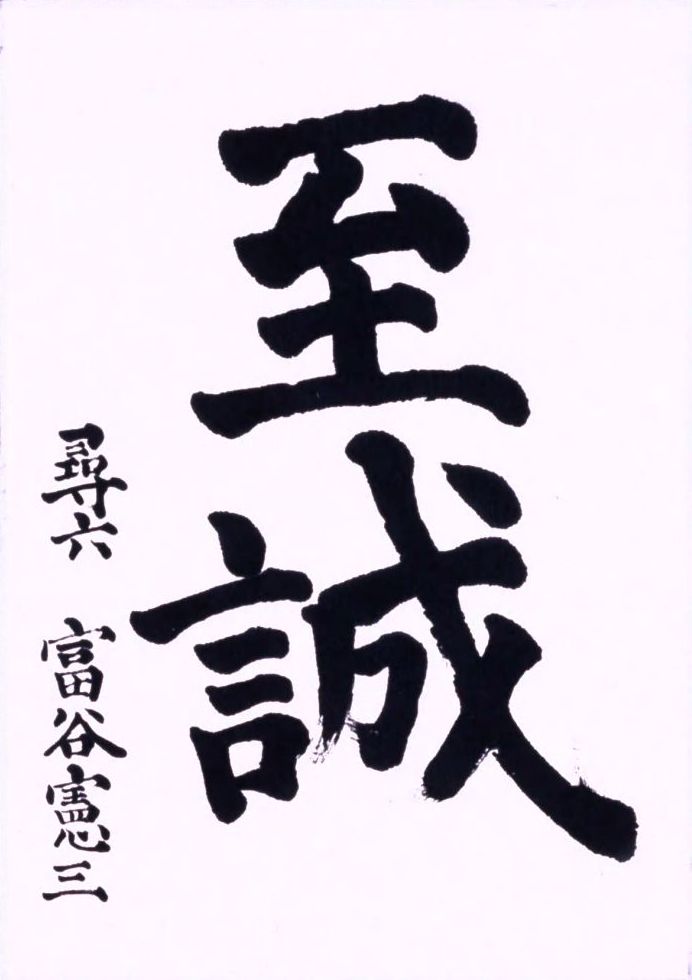 至誠
尋六 富谷憲三